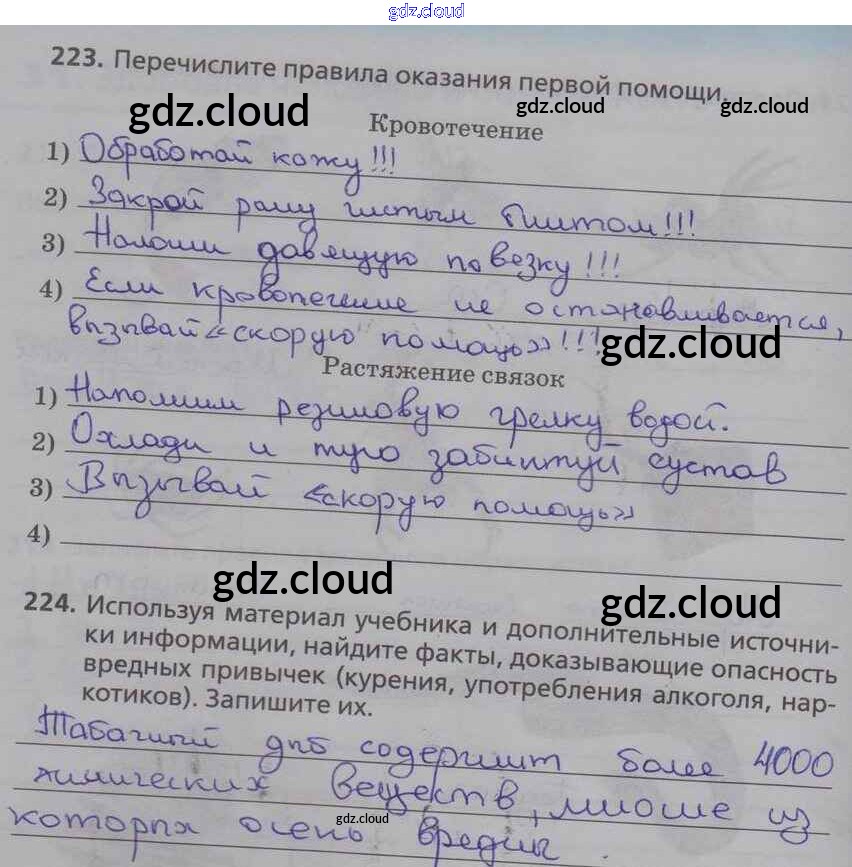 gdz.cloud
223. Перечислите правила оказания первой помощи.
gdz.cloud gdz.cloud gdz.cloud
Кровотечение
1) Обработай кожу!!!
2) Закрой рану чистым бинтом!!!
3) Наложи давящую повезку!!!
4) Если кровотечение не останавливается,
вызывай «скорую помощь»!!!
gdz.cloud
Растяжение связок
1) Наполним резиновую грелку водой.
2) Охлади и туго забинтуй сустав
3) Вызывай «скорую помощь»
4)
gdz.cloud gdz.cloud
224. Используя материал учебника и дополнительные источни-
ки информации, найдите факты, доказывающие опасность
вредных привычек (курения, употребления алкоголя, нар-
котиков). Запишите их.
Табачный дпб содержит более 4000
химических веществ, многие из
которых очень вредны.
gdz.cloud
gdz.cloud